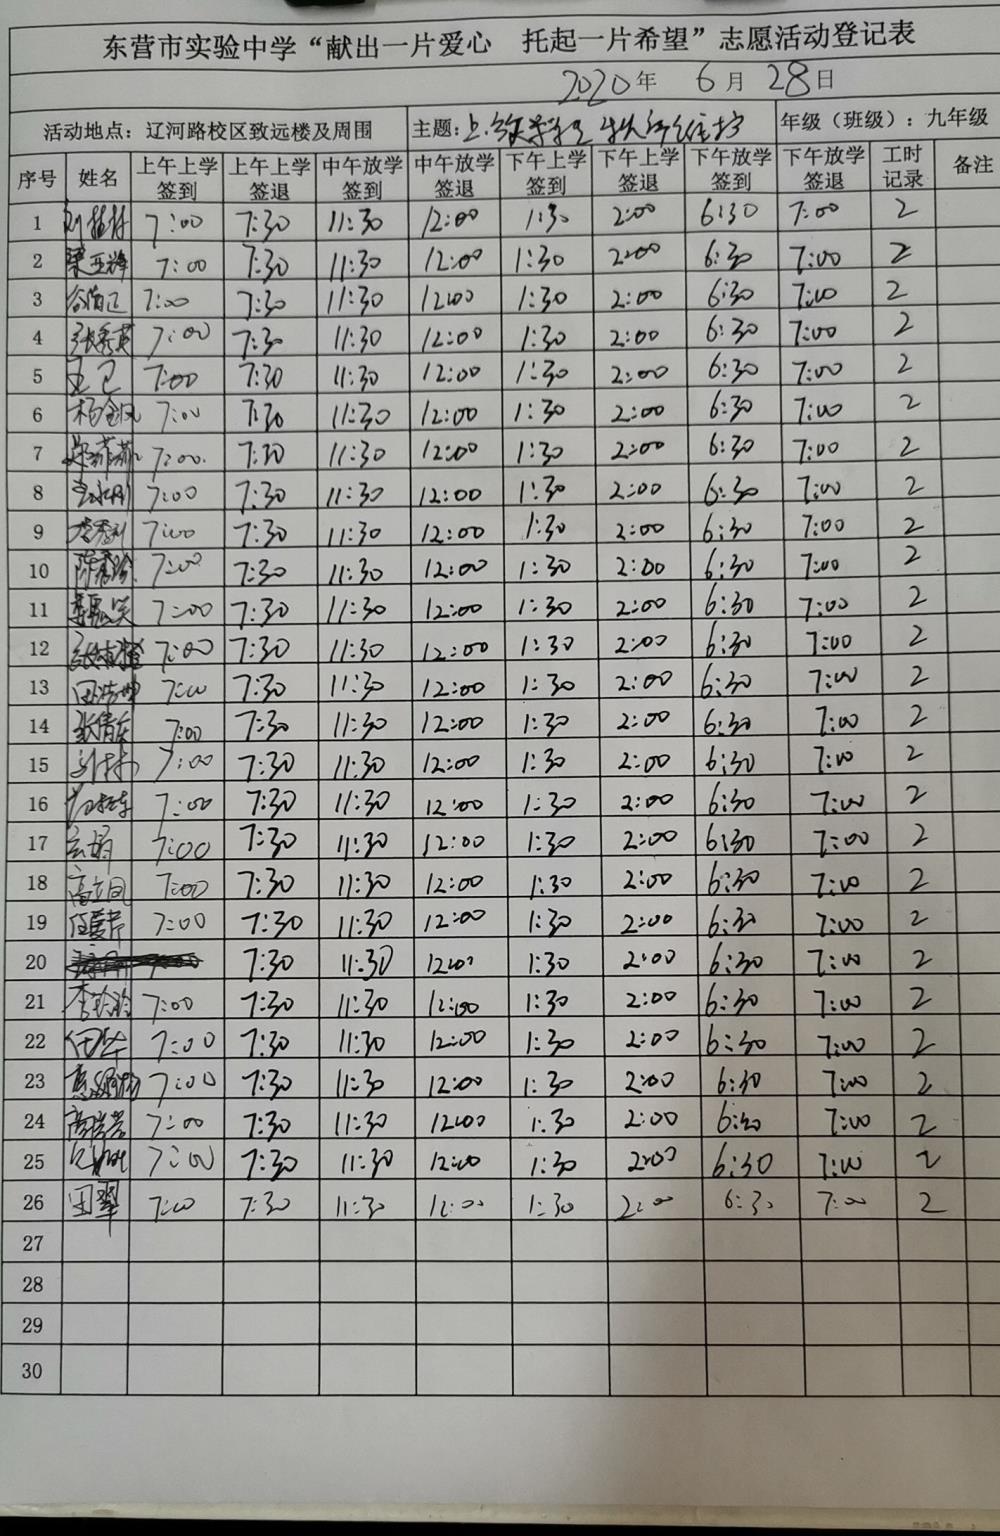 东营市实验中学“献出一片爱心 托起一片希望”志愿活动登记表
2020年 6月 28日
活动地点：辽河路校区致远楼及周围 主题：上放学学生 年级（班级）：九年级
序号 姓名 上午上学签到 上午上学签退 中午放学签到 中午放学签退 下午上学签到 下午上学签退 下午放学签到 下午放学签退 工时记录 备注
1 7:00 7:30 11:30 12:00 1:30 2:00 6:30 7:00 2
2 7:00 7:30 11:30 12:00 1:30 2:00 6:30 7:00 2
3 7:00 7:30 11:30 12:00 1:30 2:00 6:30 7:00 2
4 张秀英 7:00 7:30 11:30 12:00 1:30 2:00 6:30 7:00 2
5 王卫 7:00 7:30 11:30 12:00 1:30 2:00 6:30 7:00 2
6 杨金凤 7:00 7:30 11:30 12:00 1:30 2:00 6:30 7:00 2
7 7:00 7:30 11:30 12:00 1:30 2:00 6:30 7:00 2
8 7:00 7:30 11:30 12:00 1:30 2:00 6:30 7:00 2
9 7:00 7:30 11:30 12:00 1:30 2:00 6:30 7:00 2
10 7:00 7:30 11:30 12:00 1:30 2:00 6:30 7:00 2
11 7:00 7:30 11:30 12:00 1:30 2:00 6:30 7:00 2
12 7:00 7:30 11:30 12:00 1:30 2:00 6:30 7:00 2
13 7:00 7:30 11:30 12:00 1:30 2:00 6:30 7:00 2
14 7:00 7:30 11:30 12:00 1:30 2:00 6:30 7:00 2
15 7:00 7:30 11:30 12:00 1:30 2:00 6:30 7:00 2
16 7:00 7:30 11:30 12:00 1:30 2:00 6:30 7:00 2
17 7:00 7:30 11:30 12:00 1:30 2:00 6:30 7:00 2
18 高立同 7:00 7:30 11:30 12:00 1:30 2:00 6:30 7:00 2
19 任爱芹 7:00 7:30 11:30 12:00 1:30 2:00 6:30 7:00 2
20 7:30 11:30 12:00 1:30 2:00 6:30 7:00 2
21 李玲玲 7:00 7:30 11:30 12:00 1:30 2:00 6:30 7:00 2
22 7:00 7:30 11:30 12:00 1:30 2:00 6:30 7:00 2
23 7:00 7:30 11:30 12:00 1:30 2:00 6:30 7:00 2
24 7:00 7:30 11:30 12:00 1:30 2:00 6:30 7:00 2
25 7:00 7:30 11:30 12:00 1:30 2:00 6:30 7:00 2
26 田翠 7:00 7:30 11:30 12:00 1:30 2:00 6:30 7:00 2
27
28
29
30